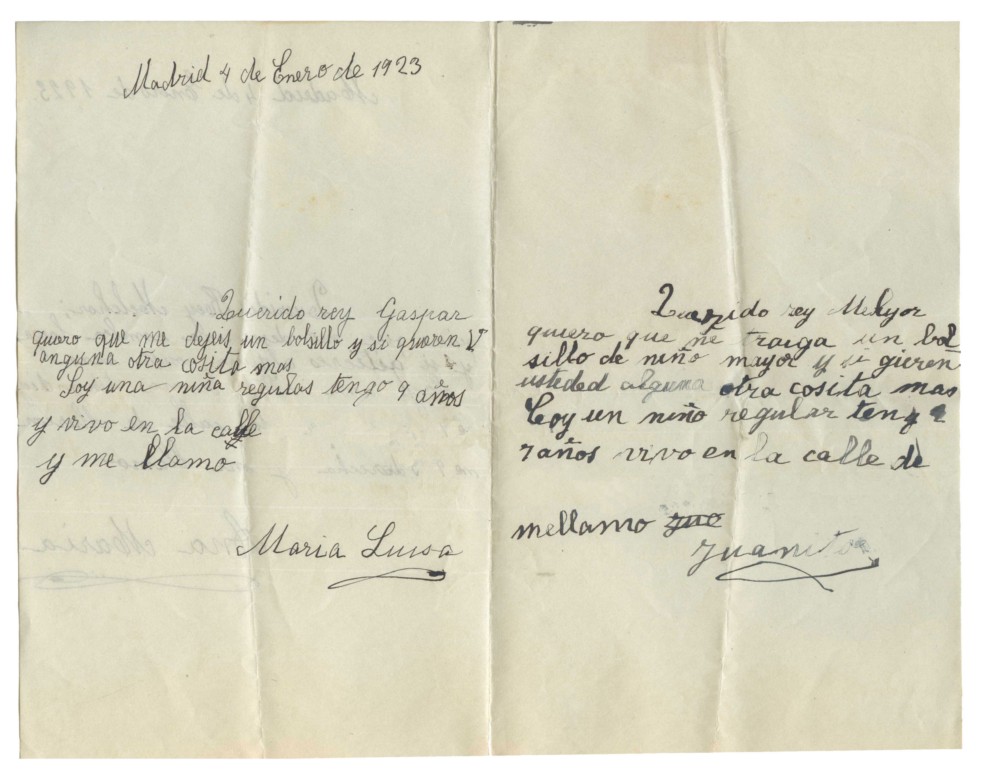 Madrid 4 de Enero de 1923
Querido rey Gaspar
quero que me dejeis un bolsillo y si quieren V.
anguna otra cosita mas
Soy una niña regulas tengo 9 años
y vivo en la calle
y me llamo
Maria Luisa
Querido rey Melyor
quiero que me traiga un bol
sillo de niño mayor y si gieren
usteded alguna otra cosita mas
Coy un niño regular teng
7años vivo en la calle de
mellamo
Juanito